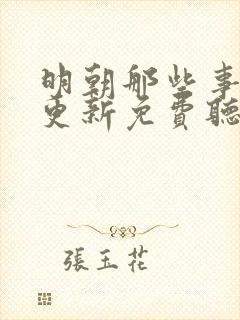 明朝那些事
更新免費聽
張玉花